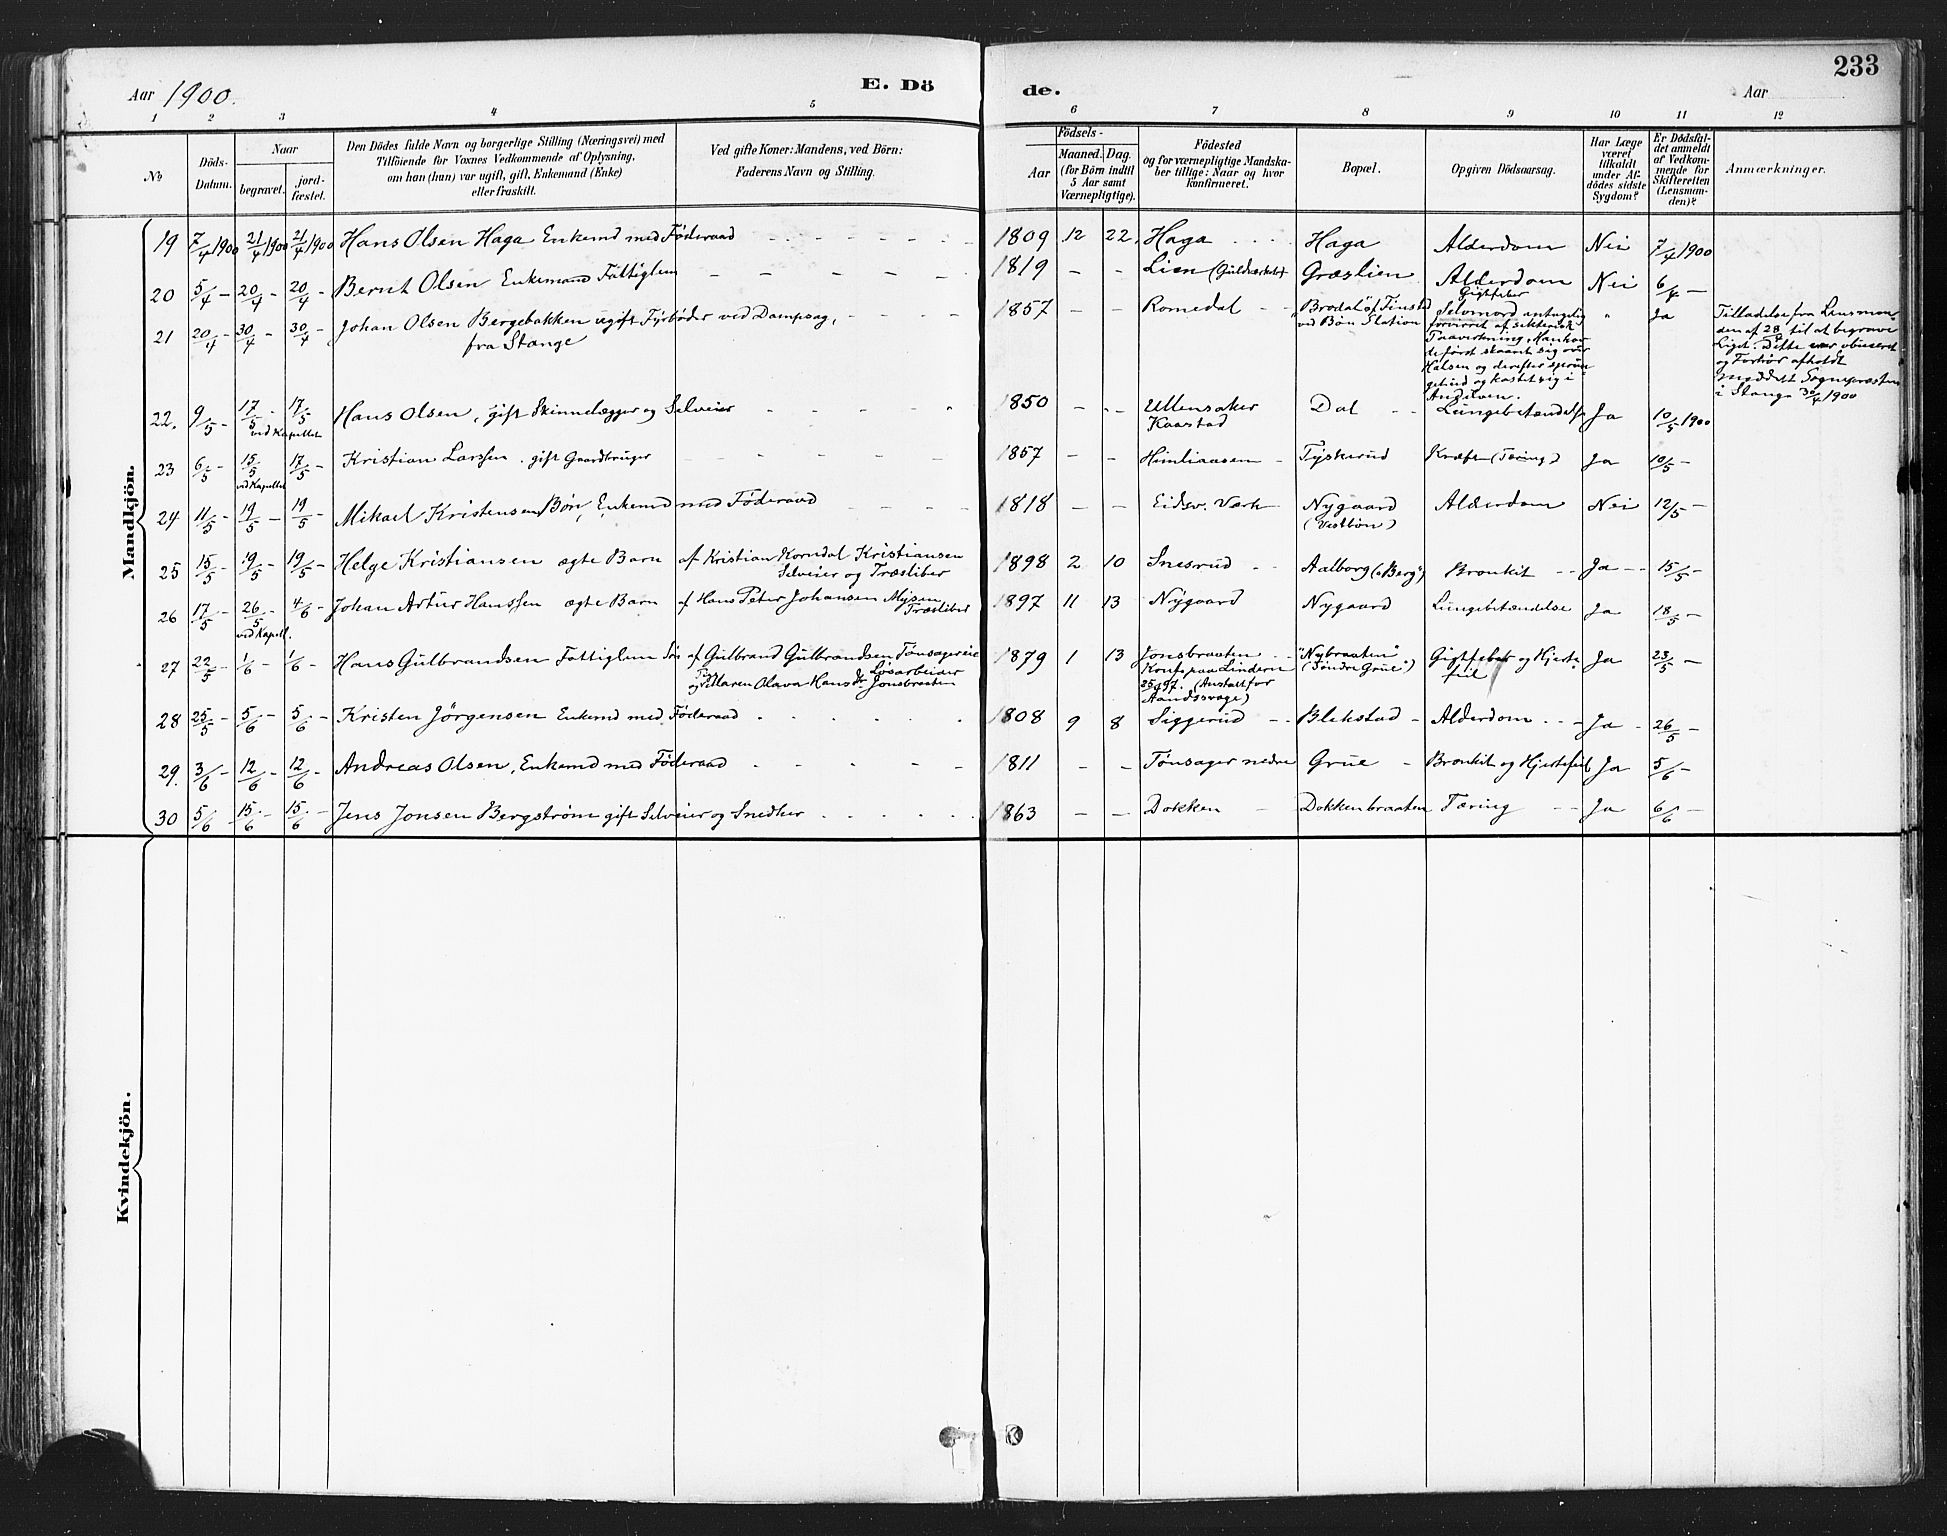 233
Aar 1900.
E. Dö
de.
Aar
1 2 3 4 5 6 7 8 9 10 11 12
No
Döds-Datum.
Naar
begravet.
jord-fæstet.
Den Dödes fulde Navn og borgerlige Stilling (Næringsvei) med
Tilföiende for Voxnes Vedkommende af Oplysning,
om han (hun) var ugift, gift, Enkemand (Enke)
eller fraskilt.
Ved gifte Koner: Mandens, ved Börn:
Faderens Navn og Stilling.
Födsels-
Aar
Maaned. Dag.
(for Börn indtil
5 Aar samt
Værnepligtige).
Födested
og for værnepligtige Mandska-
ber tillige: Naar og hvor
konfirmeret.
Bopæl.
Opgiven Dödsaarsag.
Har Læge
været
tilkaldt
under Af-
dödes sidste
Sygdom?
Er Dödsfal-
det anmeldt
af Vedkom-
mende for
Skifteretten
(Lensman-
den)?
Anmærkninger.
Mandkjön.
19 7/4 1900 21/4 1900 21/4 1900 Hans Olsen Haga Enkemd med Føderaad 1809 12 22. Haga Haga Alderdom Nei 7/4 1900
20 5/4 – 20/4 – 20/4 – Bernt Olsen Enkemand Fattiglem – 1819 – – Lien (Guldverket) Græslien Alderdom Nei 6/4 –
Gigtfeber
21 20/4 – 30/4 – 30/4 – Johan Olsen Bergebakken ugift Fyrbøder ved Dampsag, 1857 – – Romedal Brodal øf Finstad Selvmord antagelig " Ja Tilladelse fra Lensman-
fra Stange ved Bøn Station forvirret af sekterisk den af 28/4 til at begrave
Paavirkning. Han hav- Liget. Dette var obduceret
de først skaaret sig over og Forhør afholdt
Halsen og derefter sprun- Sognepresten
get ud og kastet sig i i Stange 30/4 1900
Andelven.
22. 9/5 – 17/5 – 17/5 – Hans Olsen, gift Skinnelægger og Selveier 1850 – – Ullensaker Dal Lungebetændelse Ja 10/5 1900
ved Kapellet Kaastad
23 6/5 – 15/5 – 17/5 – Kristian Larssen. gift Gaardbruger 1857 – – Himliaasen Tyskerud Kræft (Tæring) Ja 10/5 –
ved Kapellet
24 11/5 – 19/5 – 19/5 – Mikael Kristensen Bøn, Enkemd med Føderaad 1818 – – Eidsv. Værk Nygaard Alderdom Nei 12/5 –
(Vestbøn)
25 15/5 – 19/5 – 19/5 – Helge Kristiansen ægte Barn af Kristian Korndal Kristiansen 1898 2 10 Snesrud Aalborg ("Berg") Bronkit Ja 15/5 –
Selveier og Træsliber
26 17/5 – 26/5 – 4/6 – Johan Artur Hanssen ægte Barn af Hans Peter Johansen Mysen 1897 11 13 Nygaard Nygaard Lungebetændelse Ja 18/5 –
ved Kapell. Træsliber
27 22/5 – 1/6 – 1/6 – Hans Gulbrandsen Fattiglem Søn af Gulbrand Gulbrandsen Tønsagereie 1879 1 13 Jonsbraaten "Nybraaten" Gigtfeber og Hjerte- Ja 23/5 –
Løsarbeider Konf. paa Lindern (Søndre Grue) feil
og Maren Olava Hansdr Jonsbraaten 25/9 97. (Anstalt for
Aandssvage)
28 25/5 – 5/6 – 5/6 – Kristen Jörgensen Enkemd med Føderaad 1808 9 8 Siggerud Blekstad Alderdom Ja 26/5 –
29. 3/6 – 12/6 – 12/6 – Andreas Olsen, Enkemd med Føderaad 1811 – – Tønsager nedre Grue Bronkit og Hjertefeil Ja 5/6 –
30 5/6 – 15/6 – 15/6 – Jens Jonsen Bergstrøm gift Selveier og Snedker 1863 – – Dokken Dokkenbraaten Tæring Ja 6/6 –
Kvindekjön.